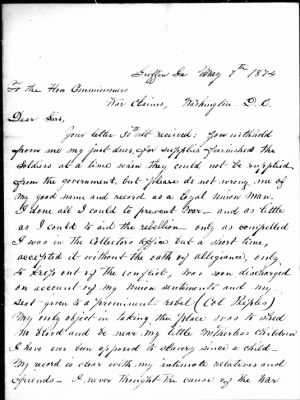 Griffin Ga May 7th 1874
To the Hon Commissioners
War Claims, Washington D. C.
Dear Sirs,
Your letter 30th ult received: You withhold
from me my just dues, for supplies furnished the
Soldiers at a time when they could not be supplied
from the government, but please do not wrong me of
my good name and record as a loyal Union man.
I done all I could to prevent war – and as little
as I could to aid the rebellion only as compelled
I was in the Collectors office but a short time,
accepted it without the oath of allegiance, only
to keep out of the conflict, was soon discharged
on account of my Union sentiments and my
seat given to a prominent rebel (Col Peeples)
My only object in taking the place was to shed
no blood and be near my little motherless children
I have ever been opposed to slavery since a child –
My record is clear with my intimate relatives and
friends – I never thought the cause of the war